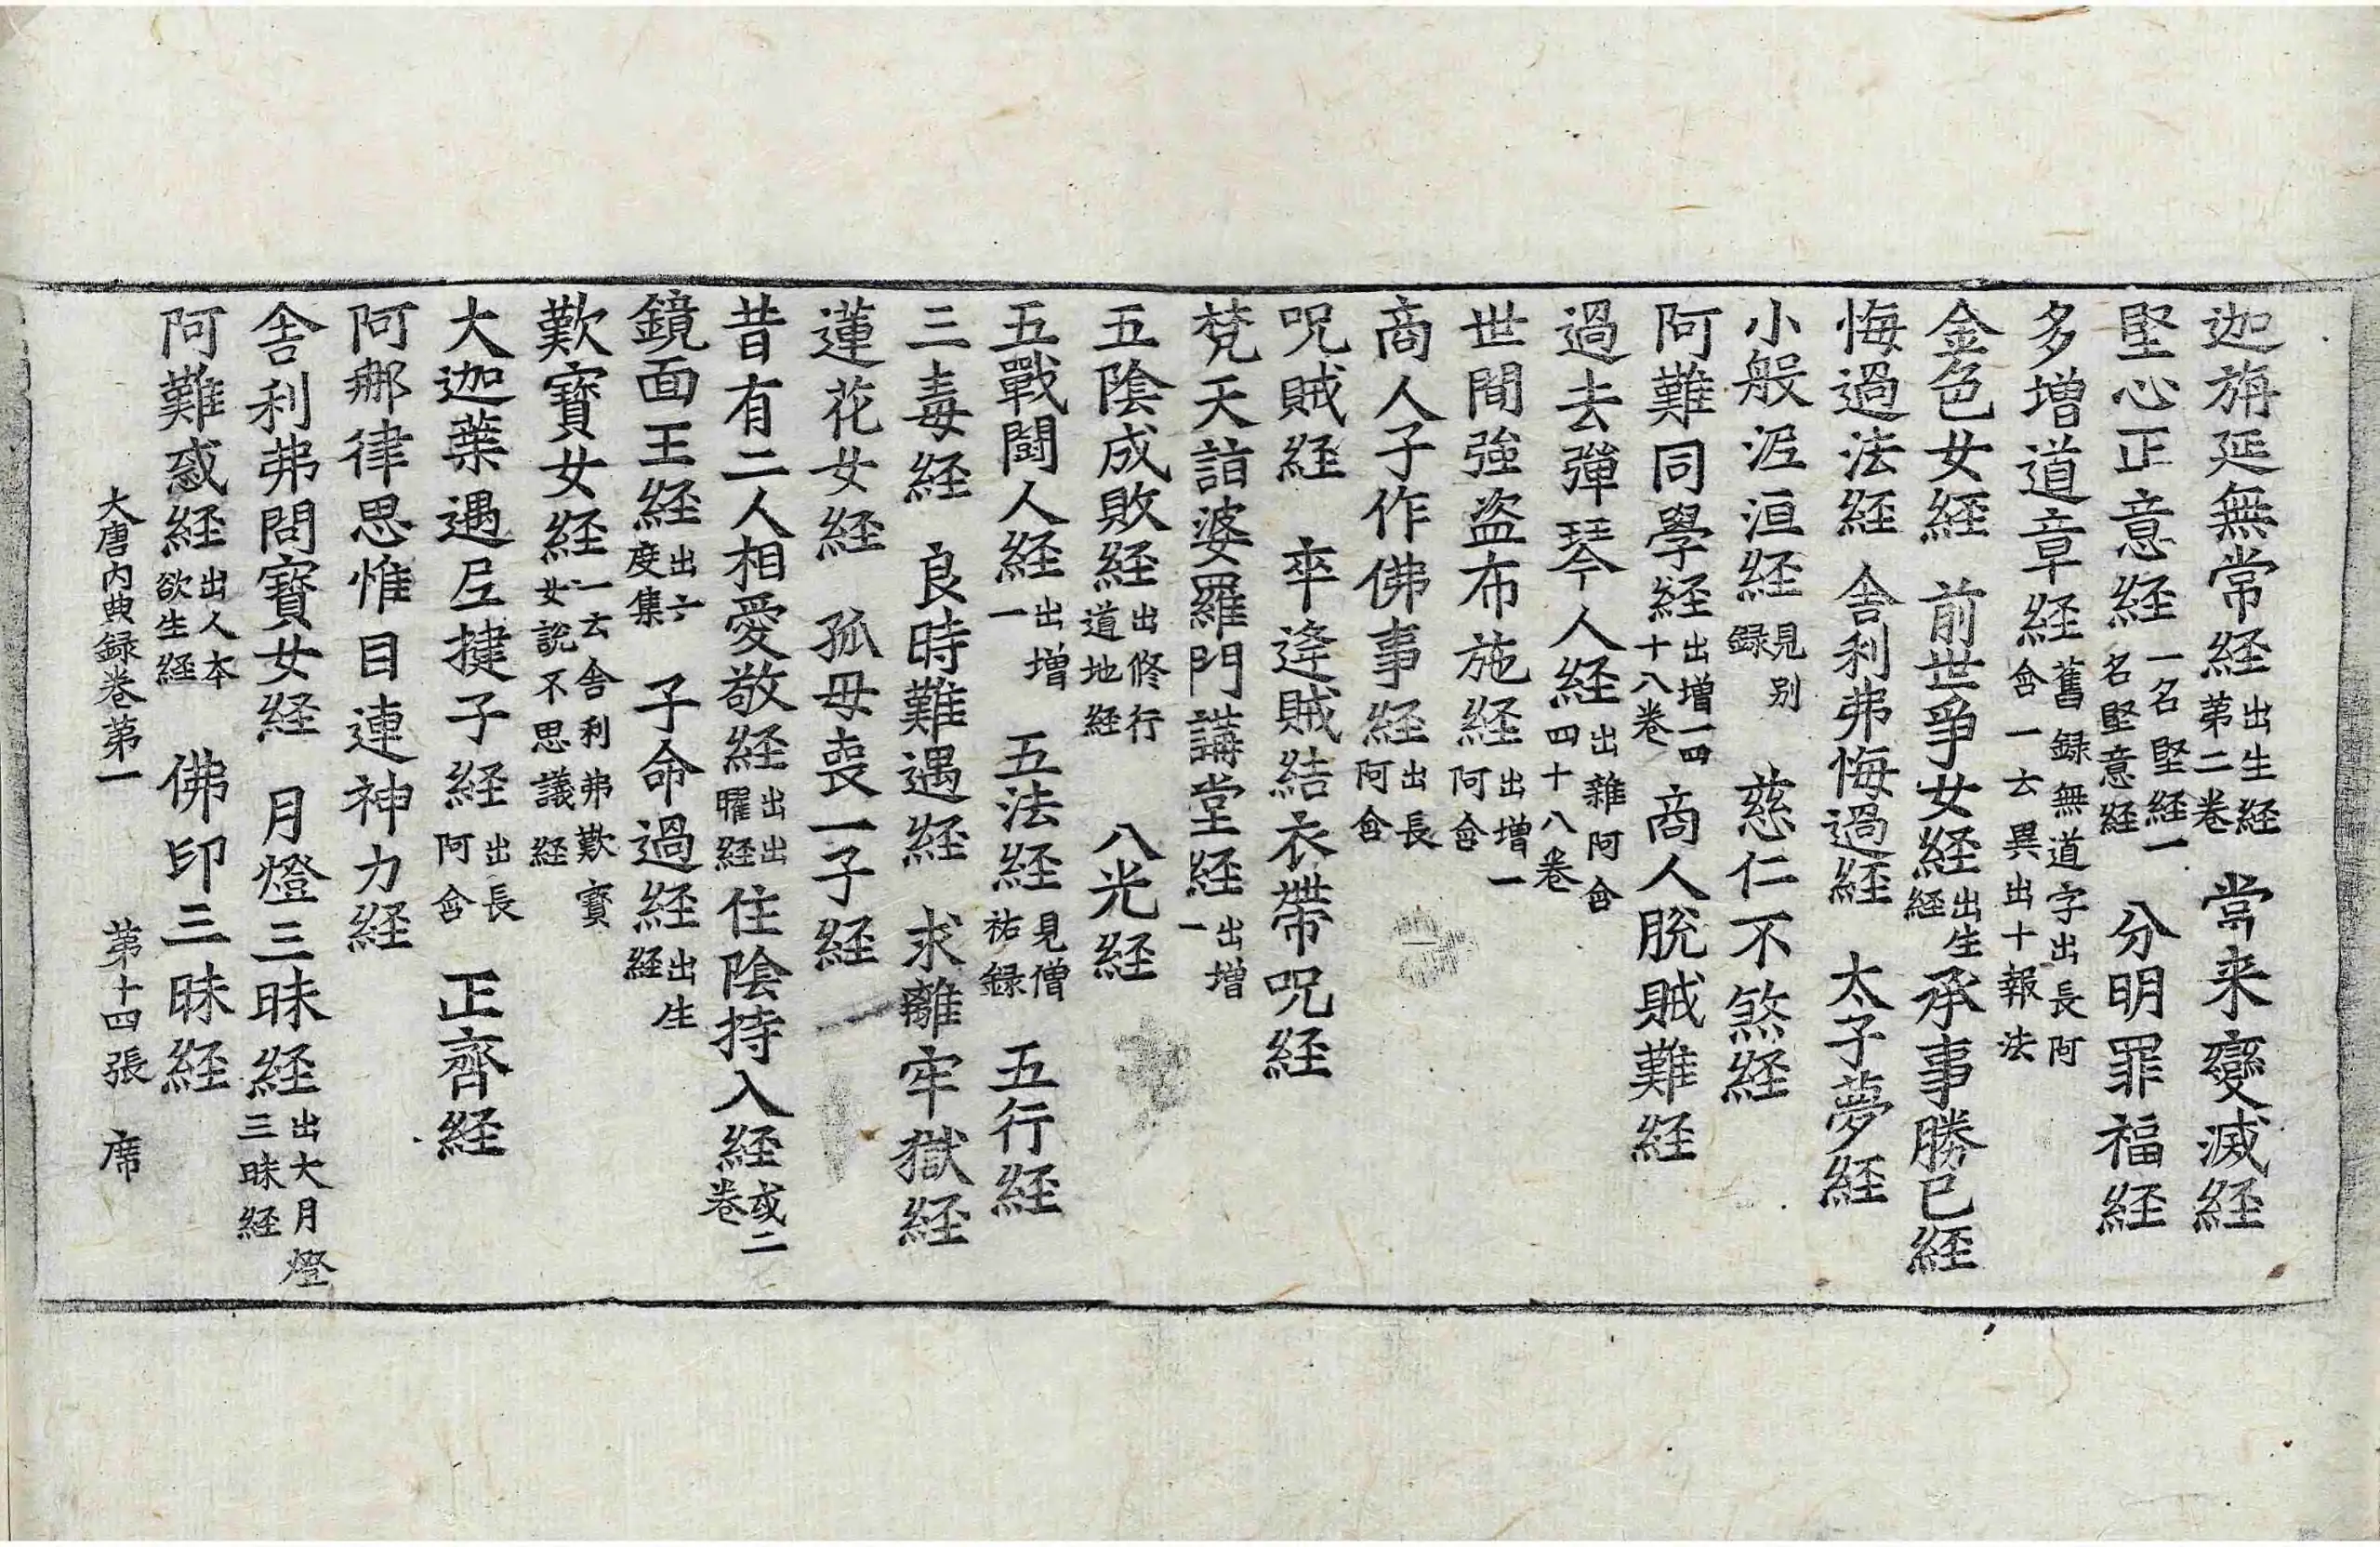 迦旃延無常経出生経第二卷 當来變滅経
堅心正意経一名堅経一名堅意経 分明罪福経
多増道章経舊録無道字出長阿含一云異出十報法
金色女経 前世爭女経出生経承事勝已経
悔過法経 舎利弗悔過経 太子夢経
小般泥洹経見别録 慈仁不煞経
阿難同學経出増一四十八卷 商人脱賊難経
過去彈琴人経出雜阿含四十八卷
世間強盗布施経出増一阿含
商人子作佛事経出長阿含
呪賊経 卒逢賊結衣帶呪経
梵天詣婆羅門講堂経出増一
五陰成敗経出修行道地経 八光経
五戰鬪人経出増一 五法経見僧祐録 五行経
三毒経 良時難遇経 求離牢獄経
蓮花女経 孤母喪一子経
昔有二人相愛敬経出出曜経住陰持入経或二卷
鏡面王経出六度集 子命過経出生経
歎寶女経一云舎利弗歎寶女説不思議経
大迦葉遇尼揵子経出長阿含 正齊経
阿那律思惟目連神力経
舎利弗問寶女経 月燈三昧経出大月燈三昧経
阿難惑経出人本欲生経 佛印三昧経
大唐内典録卷第一 第十四張 席